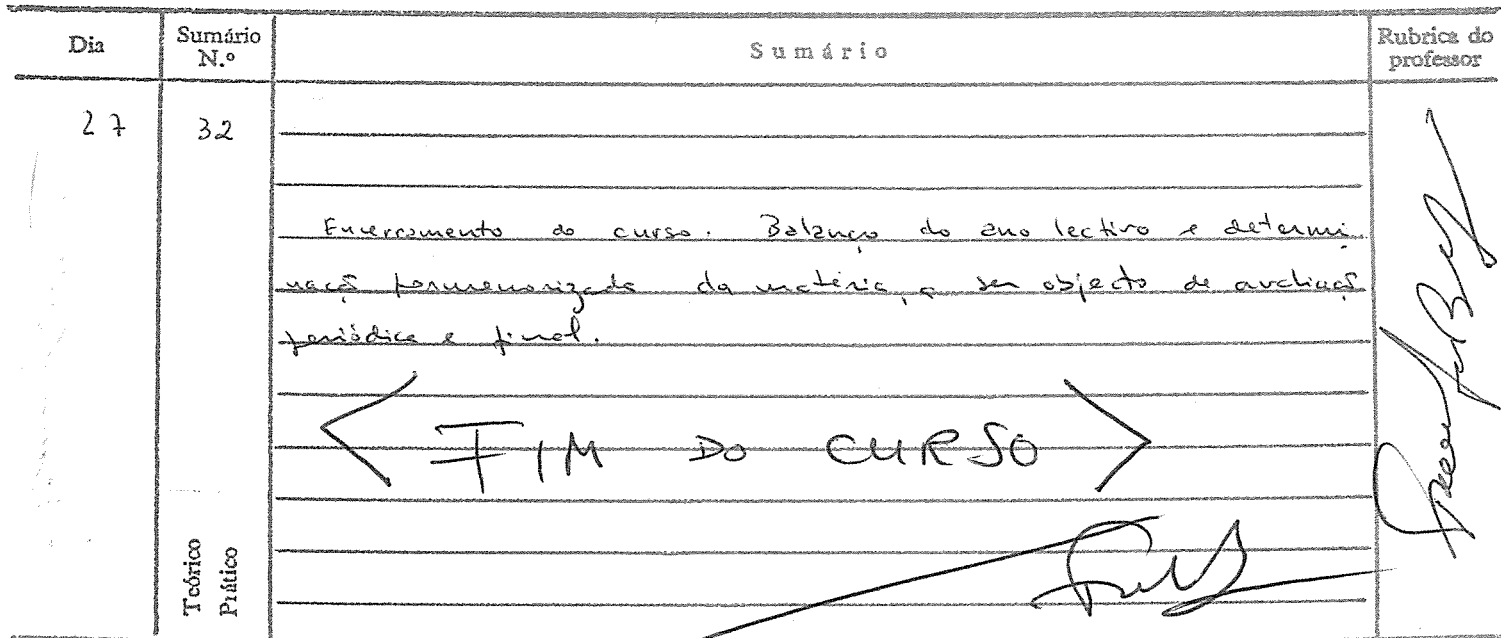 Dia
Sumário N.º
Sumário
Rubrica do professor
27
32
Encerramento do curso. Balanço do ano lectivo e determi
nação pormenorizada da matéria, a ser objecto de avaliação
periódica e final.
< FIM DO CURSO >
Teórico
Prático